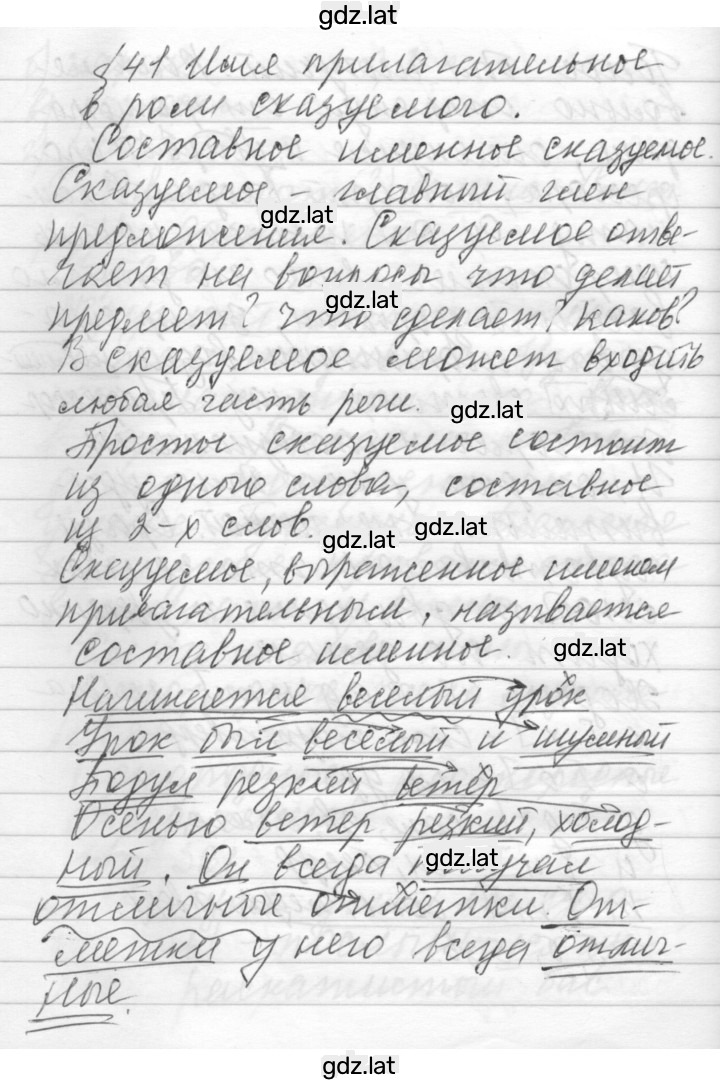 gdz.lat
§41 Имя прилагательное
в роли сказуемого.
Составное именное сказуемое.
Сказуемое - главный член
gdz.lat
предложения. Сказуемое отве-
чает на вопросы что делает
gdz.lat
предмет? что сделает? каков?
В сказуемое может входить
любая часть речи.
gdz.lat
Простое сказуемое состоит
из одного слова, составное
из 2-х слов.
gdz.lat
gdz.lat
Сказуемое, выраженное именем
прилагательным, называется
составное именное.
gdz.lat
Начинается веселый урок
Урок был веселый и шумный
Подул резкий ветер
Осенью ветер резкий, холод-
ный. Он всегда получал
gdz.lat
отличные отметки. От-
метки у него всегда отлич-
ные.
gdz.lat